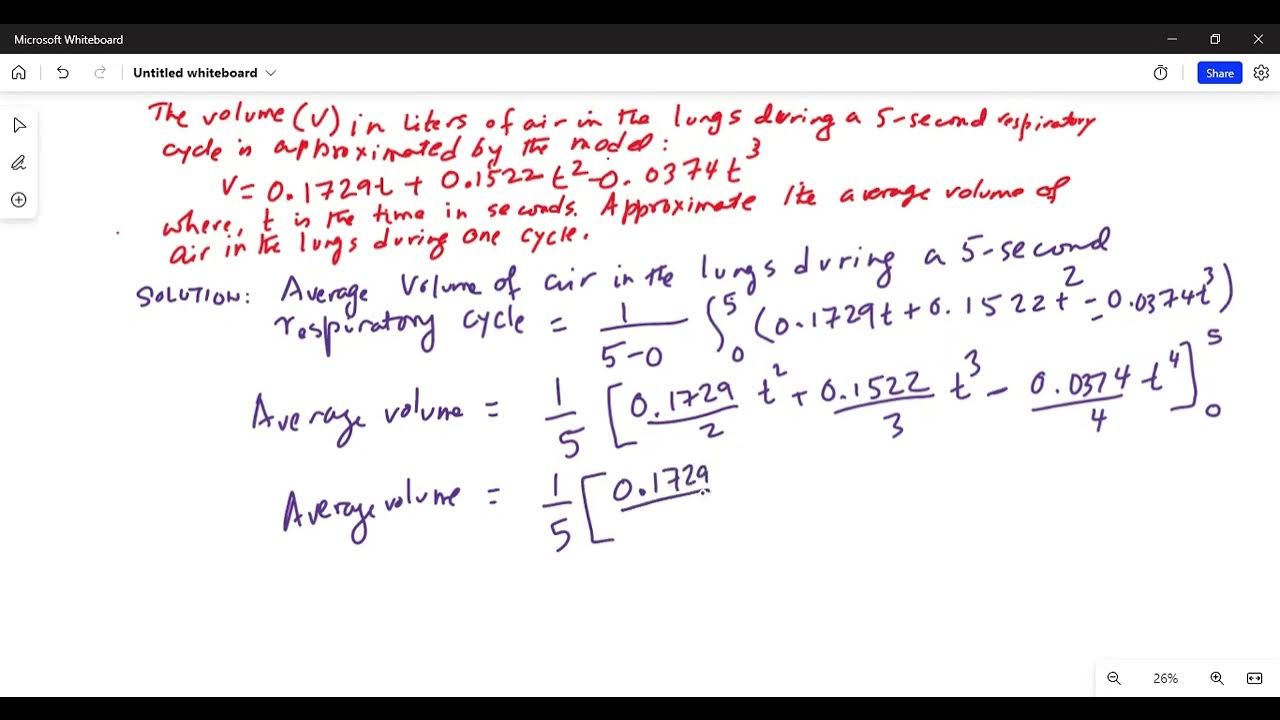 Microsoft Whiteboard
Untitled whiteboard
Share
The volume (V) in Liters of air in the lungs during a 5-second respiratory
cycle is approximated by the model:
V = 0.1729t + 0.1522t² - 0.0374t³
where, t is the time in seconds. Approximate the average volume of
air in the lungs during one cycle.
SOLUTION: Average Volume of air in the lungs during a 5-second
respiratory cycle = 1/(5-0) ∫₀⁵ (0.1729t + 0.1522t² - 0.0374t³)
Average volume = 1/5 [0.1729/2 t² + 0.1522/3 t³ - 0.0374/4 t⁴]₀⁵
Average volume = 1/5 [0.1729
26%